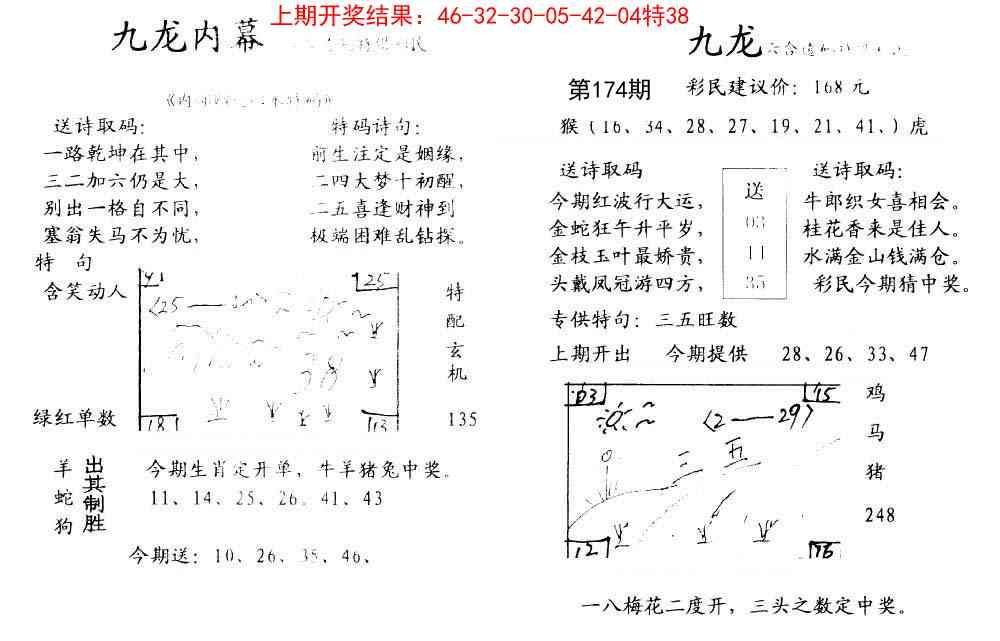 上期开奖结果：46-32-30-05-42-04特38
九龙内幕
送诗取码：
一路乾坤在其中，
三二加六仍是大，
别出一格自不同，
塞翁失马不为忧，
特码诗句：
前生注定是姻缘，
二四大梦十初醒，
二五喜逢财神到
极端困难乱钻探。
特 句
含笑动人
绿红单数
25
〈25
38
18
13
特
配
玄
机
135
羊
蛇
狗
出其制胜
今期生肖定开单，牛羊猪兔中奖。
11、14、25、26。41、43
今期送：10、26、35、46、
九龙
第174期 彩民建议价：168元
猴（16、34、28、27、19、21、41、）虎
送诗取码
今期红波行大运，
金蛇狂午升平岁，
金枝玉叶最娇贵，
头戴凤冠游四方，
送
03
11
35
送诗取码：
牛郎织女喜相会。
桂花香来是佳人。
水满金山钱满仓。
彩民今期猜中奖。
专供特句：三五旺数
上期开出 今期提供 28、26、33、47
03
15
〈2——29〉
三 五
12
16
鸡
马
猪
248
一八梅花二度开，三头之数定中奖。